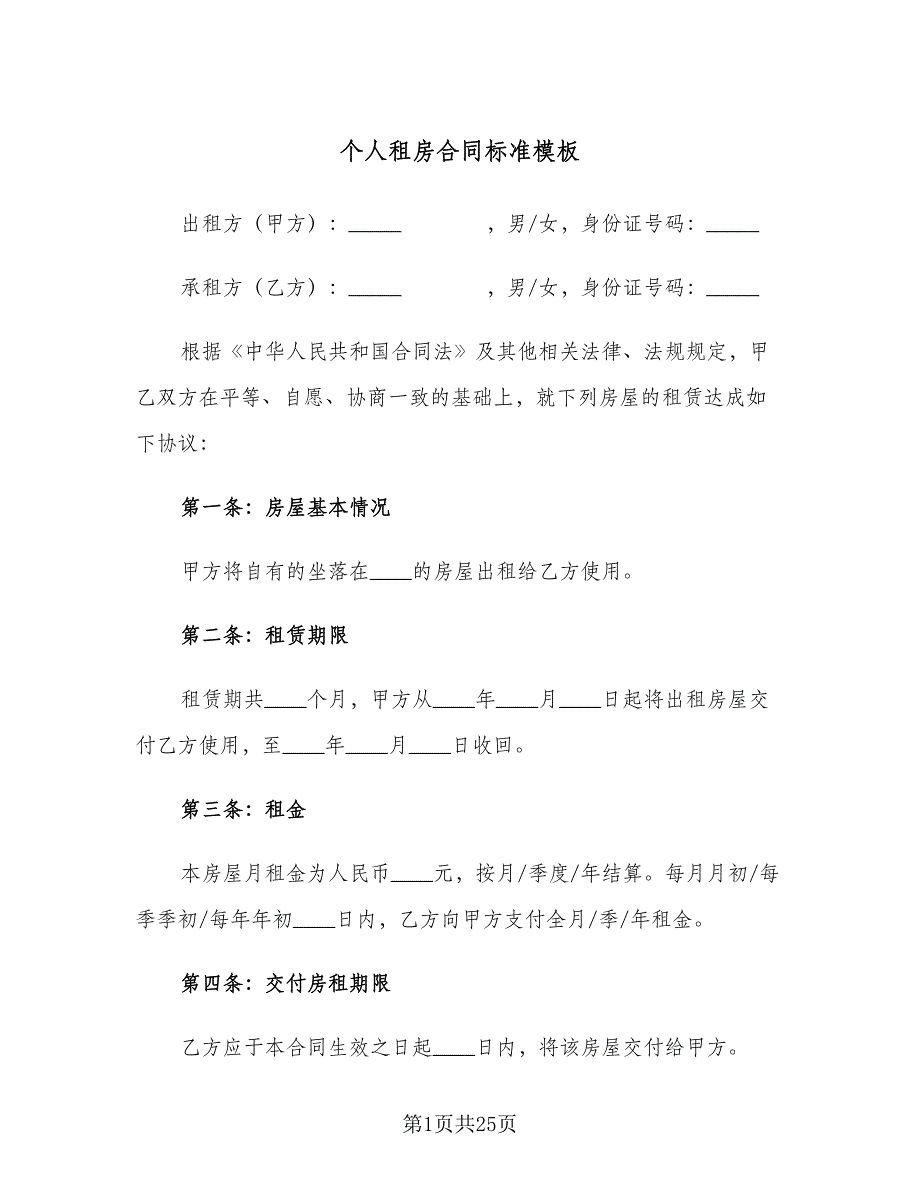 个人租房合同标准模板
出租方（甲方）：_____ ，男/女，身份证号码：_____
承租方（乙方）：_____ ，男/女，身份证号码：_____
根据《中华人民共和国合同法》及其他相关法律、法规规定，甲
乙双方在平等、自愿、协商一致的基础上，就下列房屋的租赁达成如
下协议：
第一条：房屋基本情况
甲方将自有的坐落在____的房屋出租给乙方使用。
第二条：租赁期限
租赁期共____个月，甲方从____年____月____日起将出租房屋交
付乙方使用，至____年____月____日收回。
第三条：租金
本房屋月租金为人民币____元，按月/季度/年结算。每月月初/每
季季初/每年年初____日内，乙方向甲方支付全月/季/年租金。
第四条：交付房租期限
乙方应于本合同生效之日起____日内，将该房屋交付给甲方。
第1页共25页